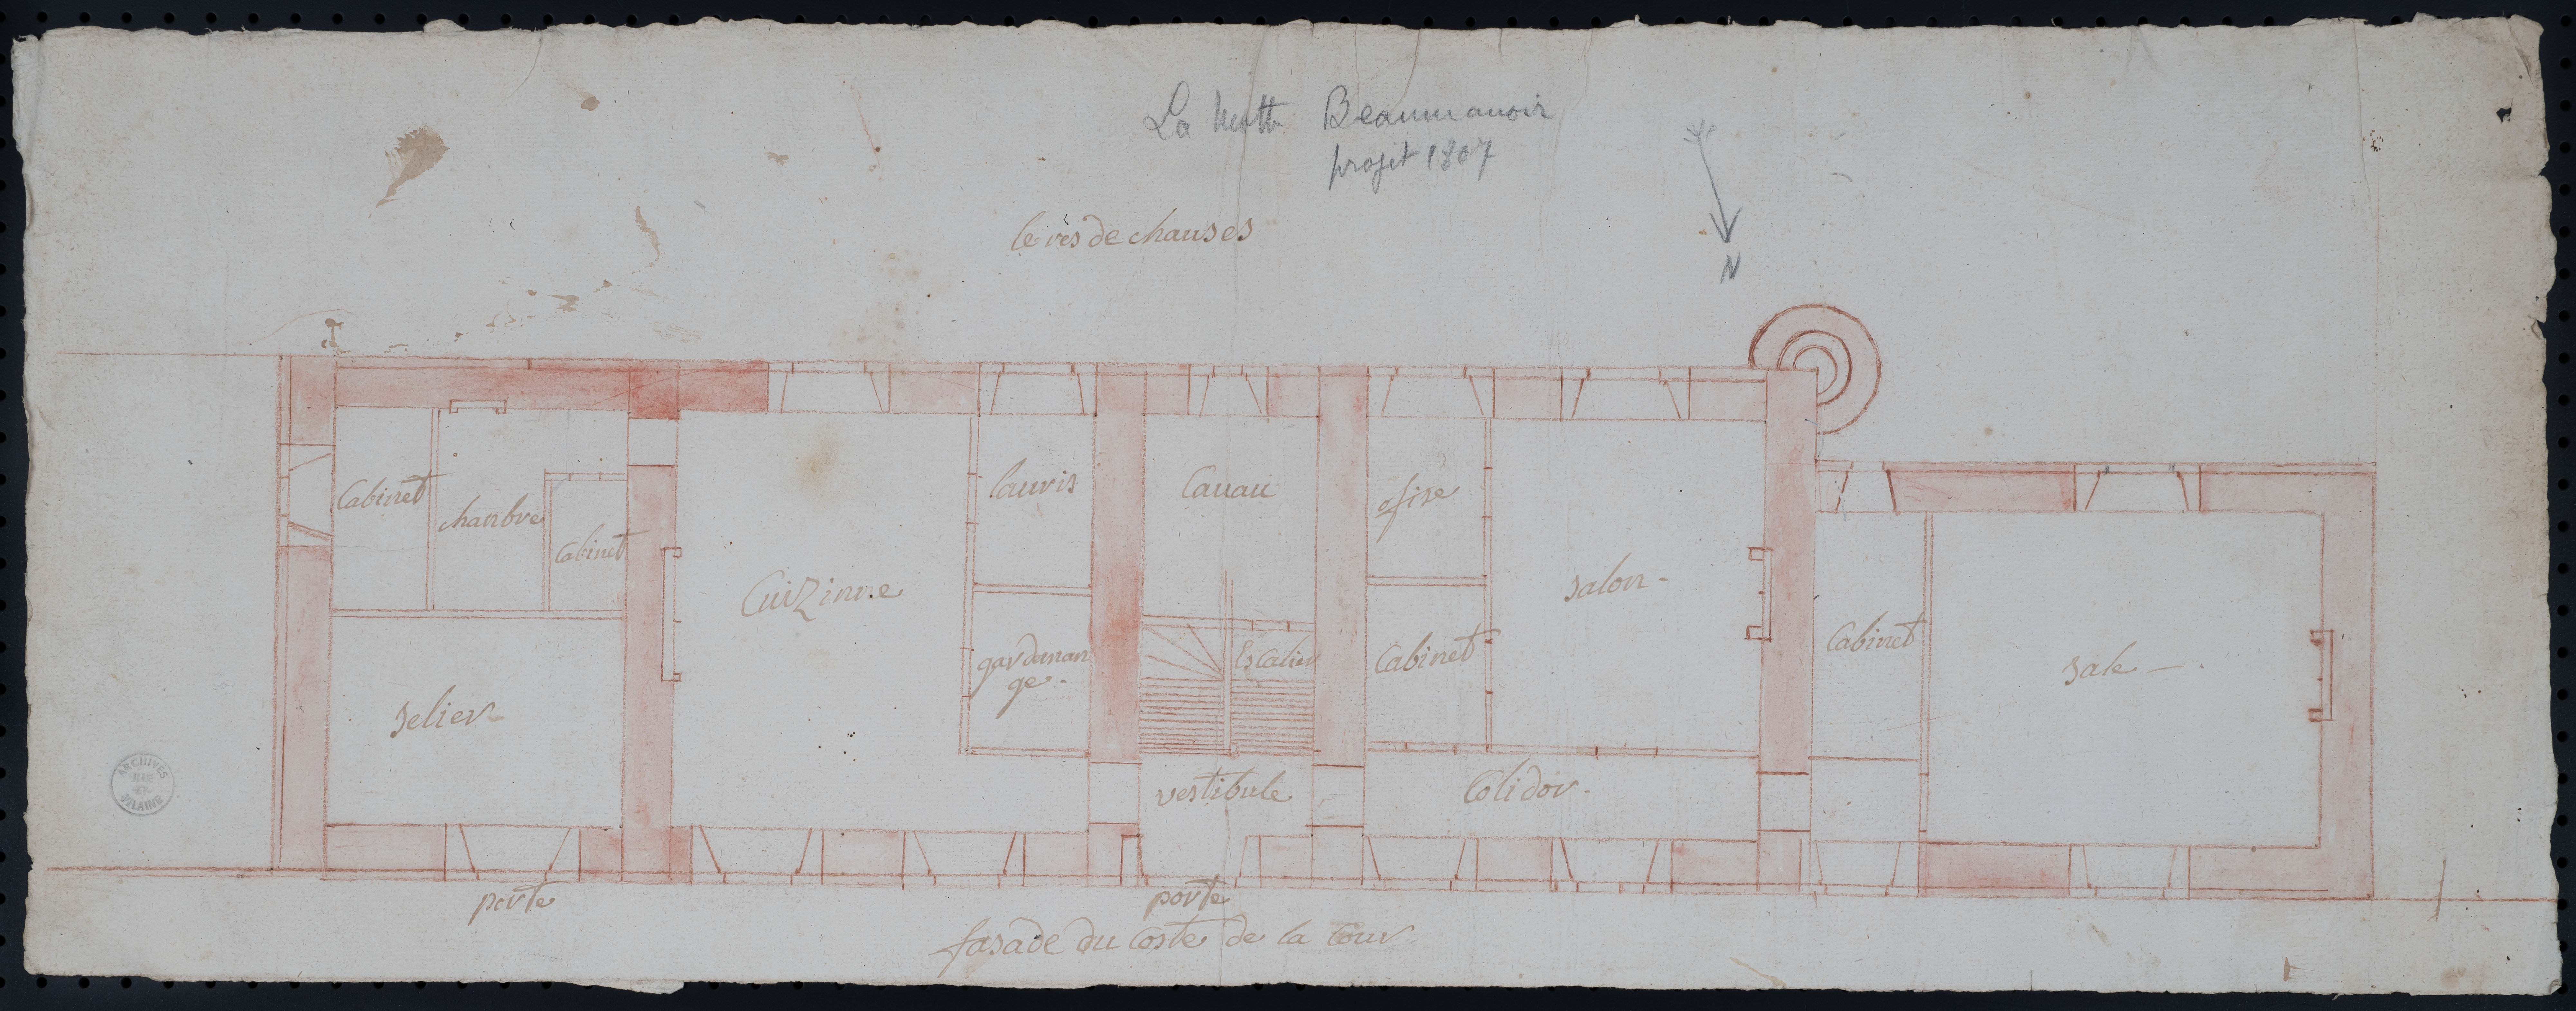 La Motte Beaumanoir
projet 1807
N
le rés de chauses
Cabinet
chanbre
Cabinet
Cuizinne
lauvis
Cauau
ofise
salon -
Cabinet
sale -
gardeman
ge.
Escalier
Cabinet
selier
vestibule
Colidor -
porte
porte
fasade du Coste de la Cour
ARCHIVES
VILAINE